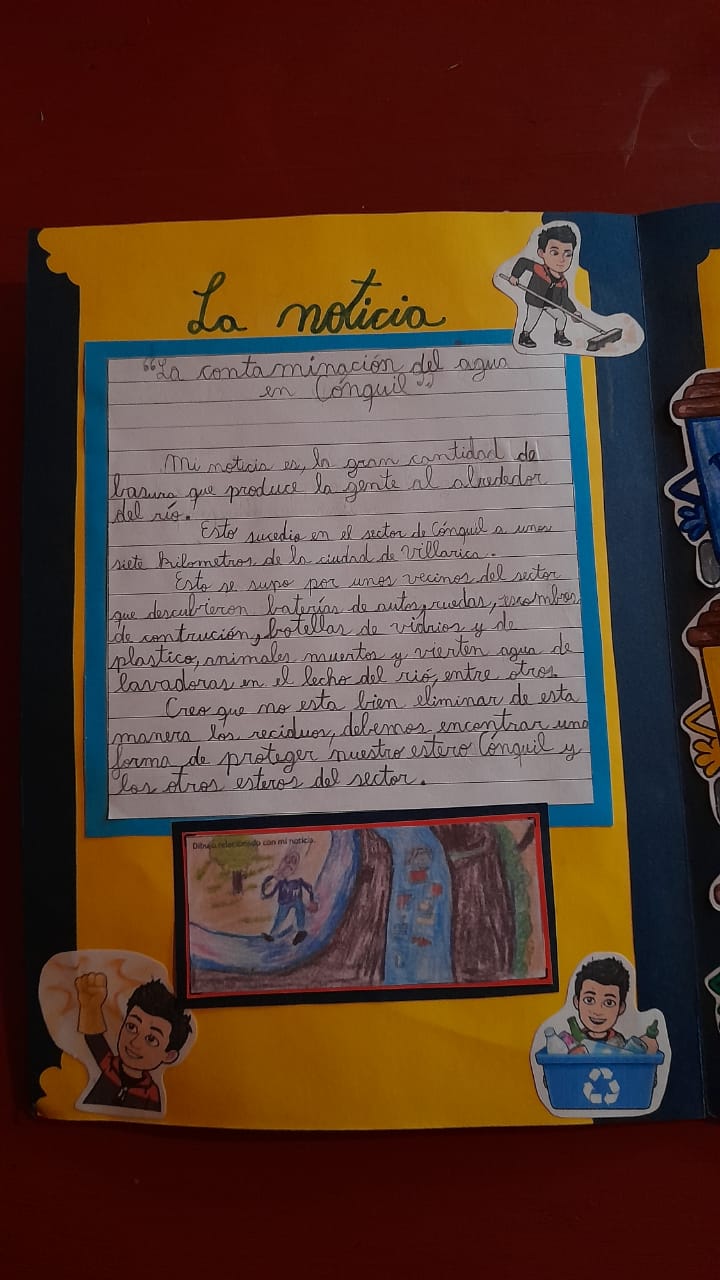 La noticia
"La contaminación del agua
en Cónquil"
Mi noticia es, la gran cantidad de
basura que produce la gente al alrededor
del río.
Esto sucedio en el sector de Cónquil a unos
siete kilometros de la ciudad de Villarica.
Esto se supo por unos vecinos del sector
que descubrieron baterías de autos, ruedas, escombros
de contrución, botellas de vidrios y de
plastico, animales muertos y vierten agua de
lavadoras en el lecho del rió, entre otros.
Creo que no esta bien eliminar de esta
manera los reciduos, debemos encontrar una
forma de proteger nuestro estero Cónquil y
los otros esteros del sector.
Dibujo relacionado con mi noticia.